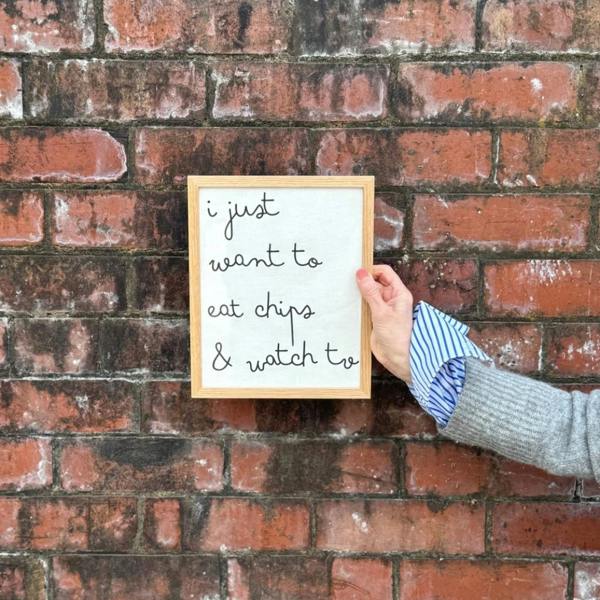 i just
want to
eat chips
& watch tv